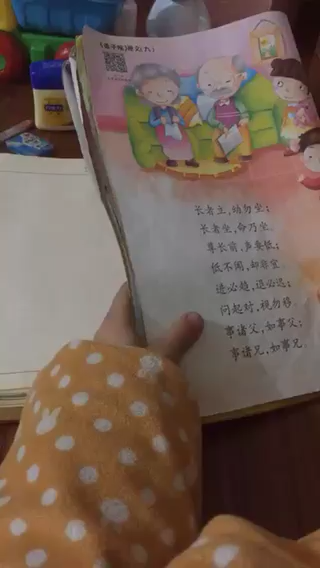 《弟子规》释义(九)
长者立,幼勿坐;
长者坐,命乃坐。
尊长前,声要低;
低不闻,却非宜。
进必趋,退必迟;
问起对,视勿移。
事诸父,如事父;
事诸兄,如事兄。